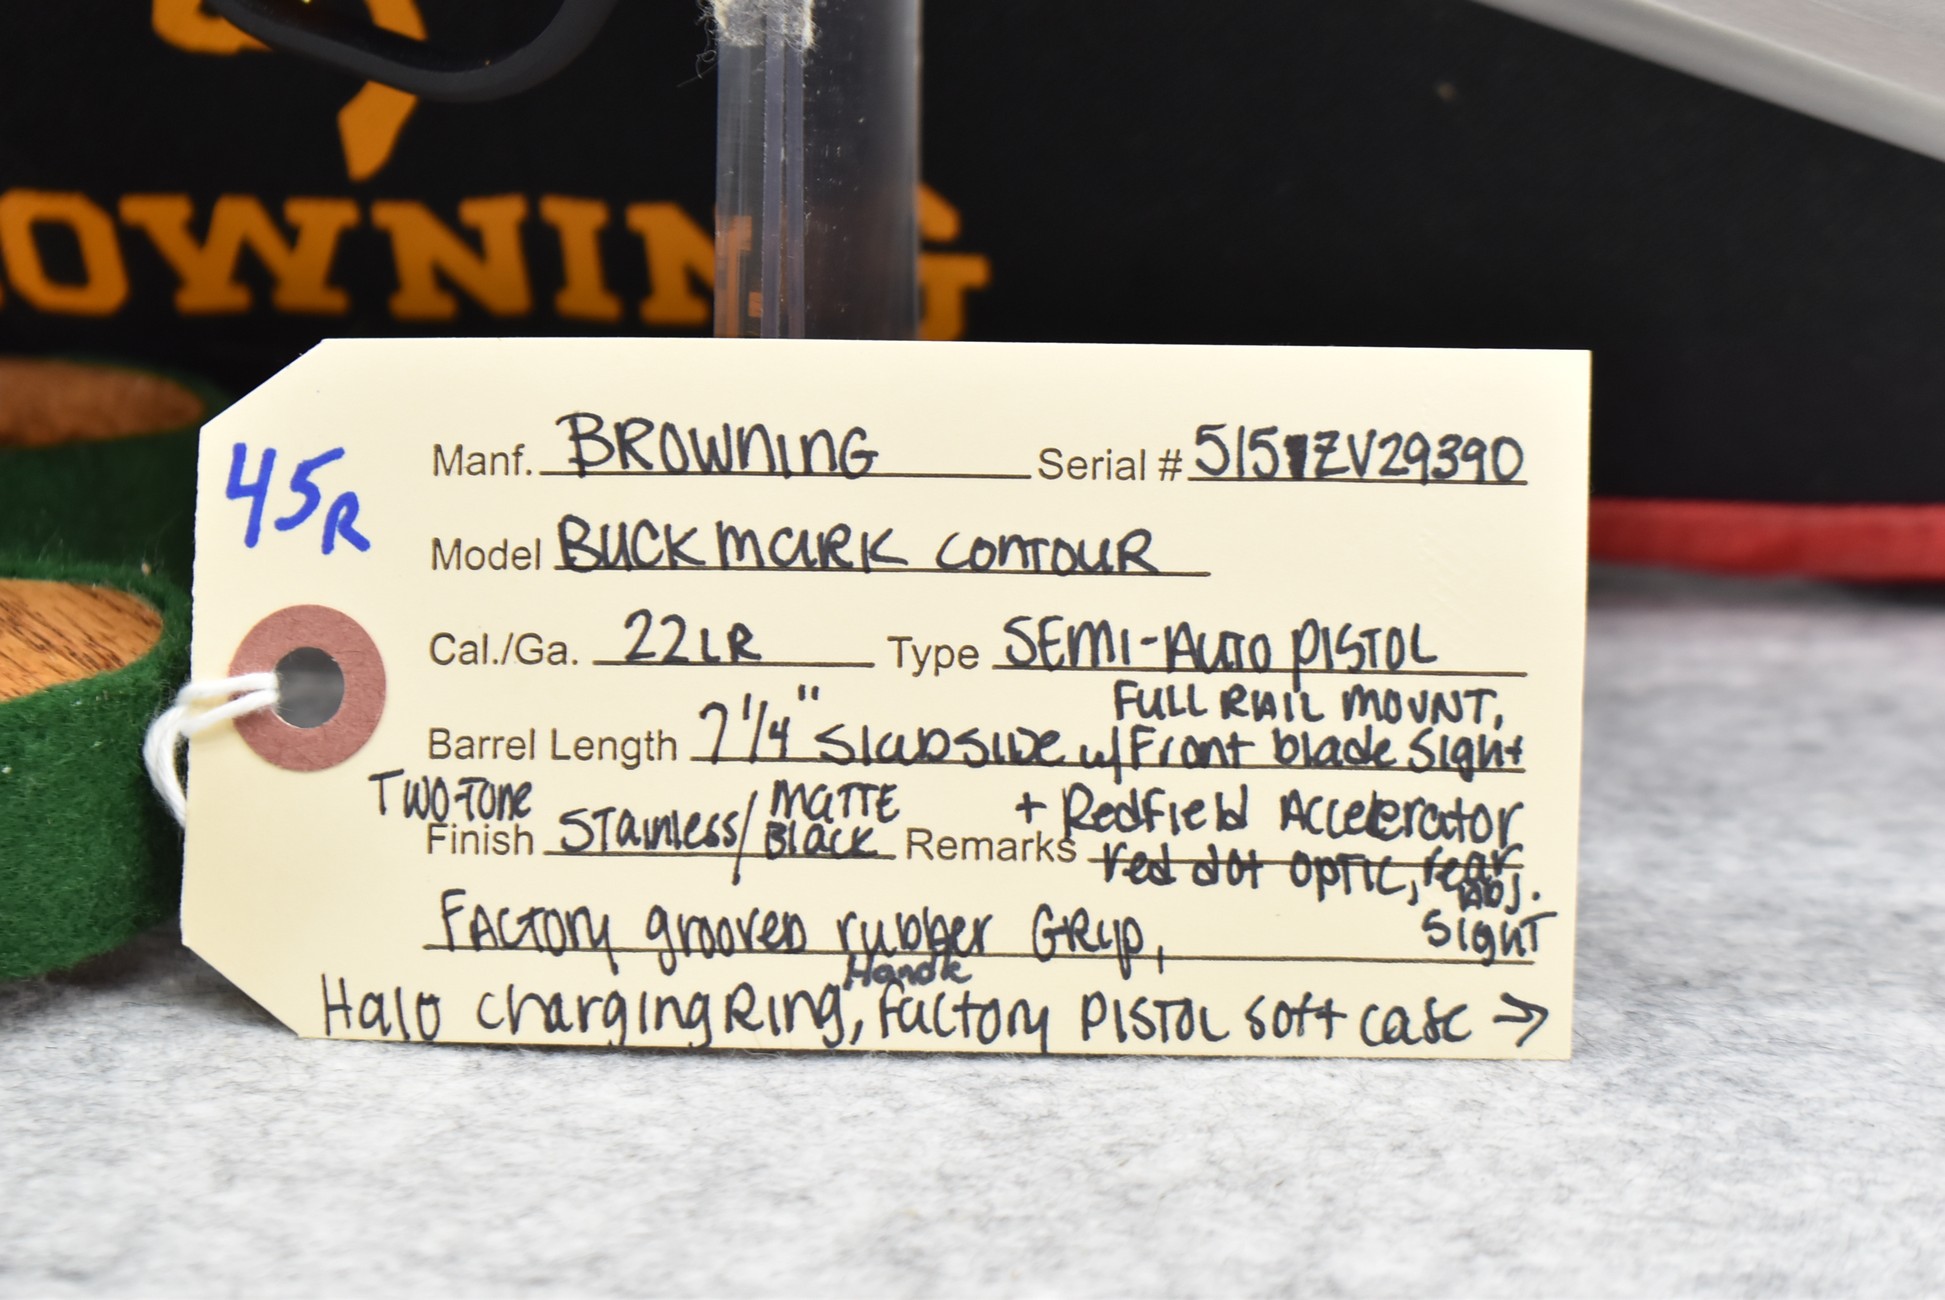 OWNING
45R
Manf. BROWNING Serial # 515 ZV29390
Model BUCK MARK CONTOUR
Cal./Ga. 22LR Type SEMI-AUTO PISTOL
FULL RAIL MOUNT,
Barrel Length 7 1/4" Slabside w/Front blade Sight
TWO-TONE MATTE + Redfield Accelerator
Finish Stainless/Black Remarks red dot optic, rear
ADJ.
Factory grooved rubber GRIP, Sight
Handle
Halo charging Ring, factory PISTOL soft case →